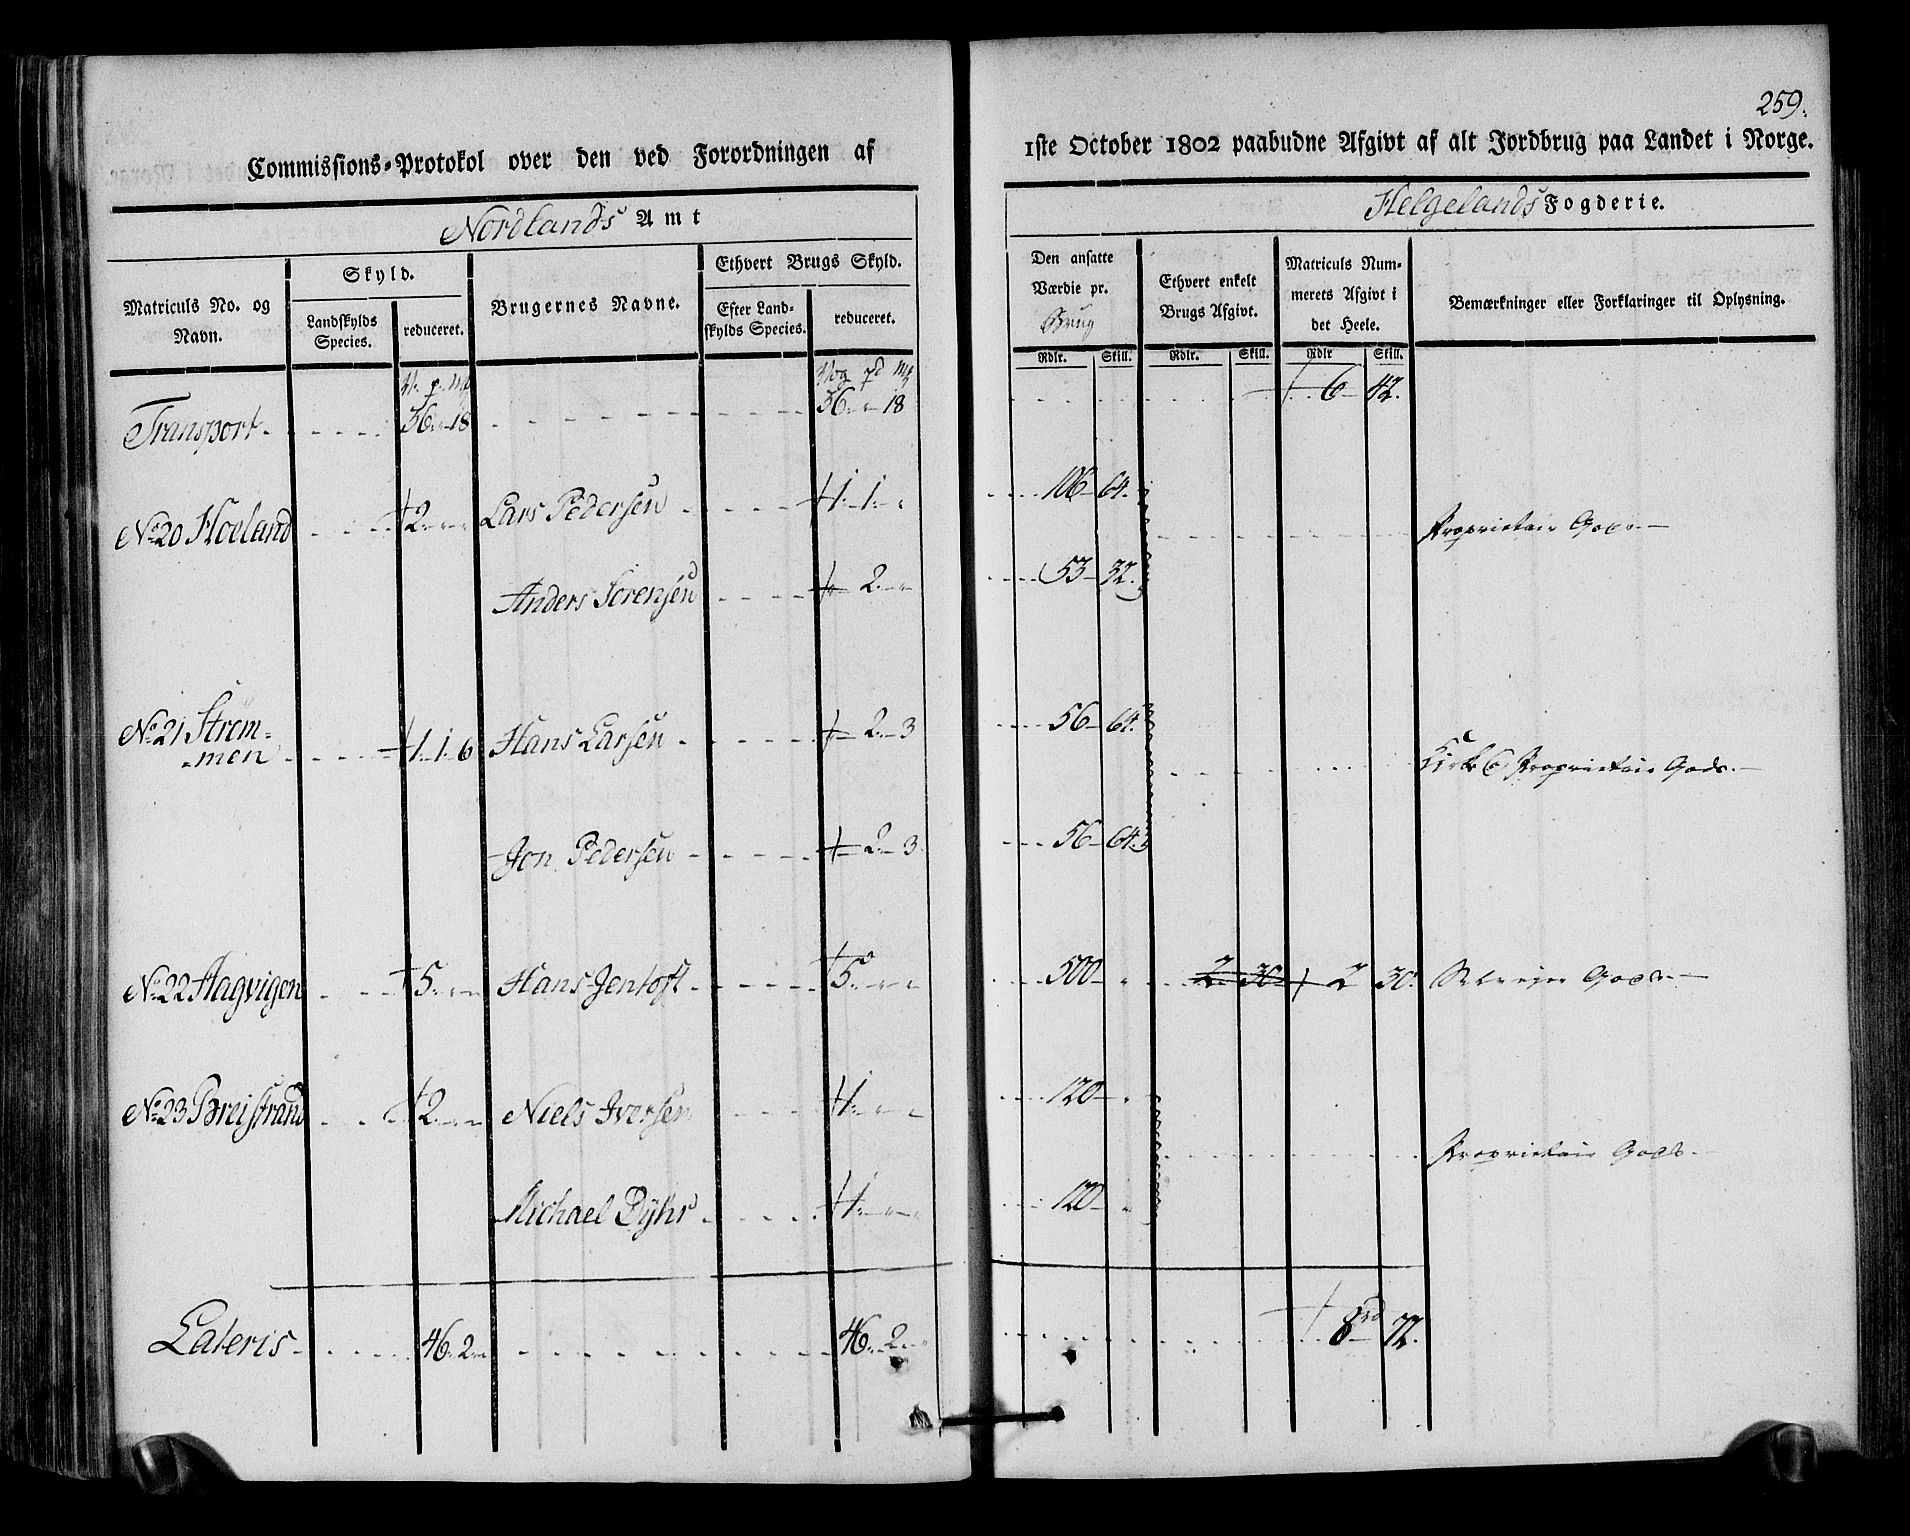 259.
Commissions-Protokol over den ved Forordningen af 1ste October 1802 paabudne Afgivt af alt Jordbrug paa Landet i Norge.
Nordlands Amt
Helgelands Fogderie.
Matriculs No. og Navn.
Skyld.
Landskylds Species.
reduceret.
Brugernes Navne.
Ethvert Brugs Skyld.
Efter Landskylds Species.
reduceret.
Den ansatte Værdie pr. Brug
Rdlr. Skill.
Ethvert enkelt Brugs Afgivt.
Rdlr. Skill.
Matriculs Nummerets Afgivt i det Heele.
Rdlr Skill.
Bemærkninger eller Forklaringer til Oplysning.
Transport 36 " 18 36 " 18 6 42.
No 20 Hoeland 2 " " Lars Pedersen 1. 1. " 106 64. Proprietair Gods.
Anders Sørensen " 2. " 53 32.
No 21 Strøm-
men 1. 1. 6 Hans Larsen 2. 3 56 64. Kirke & Proprietair Gods.
Jon Pedersen 2. 3. 56 64.
No 22 Aagvigen 5. " " Hans Jentoft 5. " " 500 " 2. 30. 2 30. Selveier Gods.
No 23 Breistrand 2. " " Niels Iversen 1. " " 120 " Proprietair Gods.
Michael Dÿhr 1. " " 120 "
Lateris 46. 2. " 46. 2. " 8 rd 72.